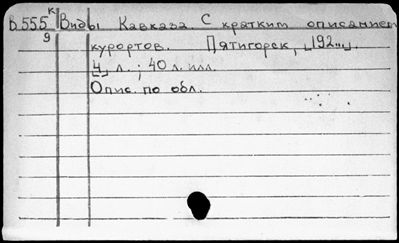 В.555 К Виды Кавказа. С кратким описанием
9 курортов. Пятигорск, [192"].
[4] л.; 40 л. илл.
Опис. по обл.